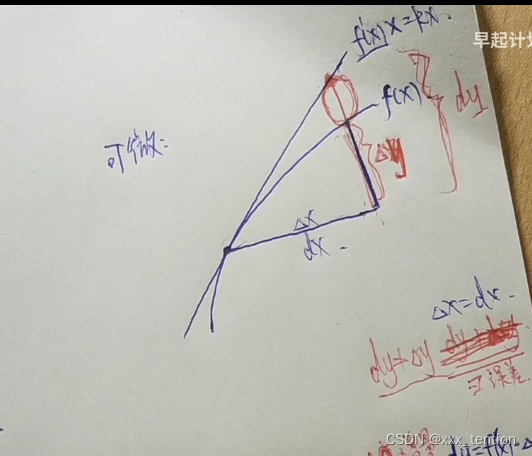 f'(x)x=kx.
早起计
f(x)
dy
可微:
Δy
Δx
dx.
Δx=dx.
dy≠Δy
误差
CSDN @xxx_tention
dy=f'(x)·Δ